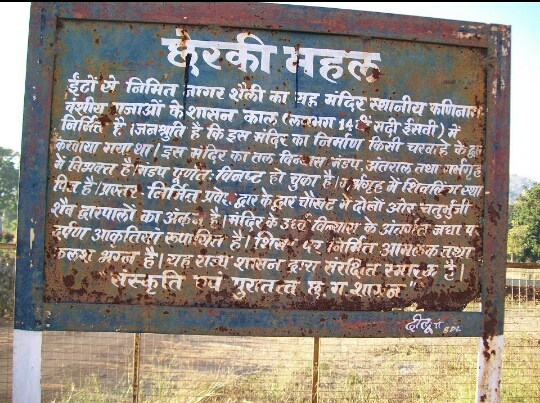 छेरकी महल
ईंटों से निर्मित नागर शैली का यह मंदिर स्थानीय फणिनाग
वंशीय राजाओं के शासन काल (लगभग 14वीं सदी ईसवी) में
निर्मित है। जनश्रुति है कि इस मंदिर का निर्माण किसी चरवाहे के द्वारा
करवाया गया था। इस मंदिर का तल विन्यास मंडप, अंतराल तथा गर्भगृह
में विभक्त है। मंडप पूर्णतः विनष्ट हो चुका है। गर्भगृह में शिवलिंग स्था-
पित है। प्रस्तर निर्मित प्रवेश द्वार के द्वार चौखट में दोनों ओर चतुर्भुजी
शैव द्वारपालों का अंकन है। मंदिर के उर्ध्व विन्यास के अंतर्गत जंघा प
र्पण आकृतियां रूपायित है। शिखर पर निर्मित आमलक तथा
कलश भग्न है। यह राज्य शासन द्वारा संरक्षित स्मारक है।
"संस्कृति एवं पुरातत्व छ.ग. शासन"